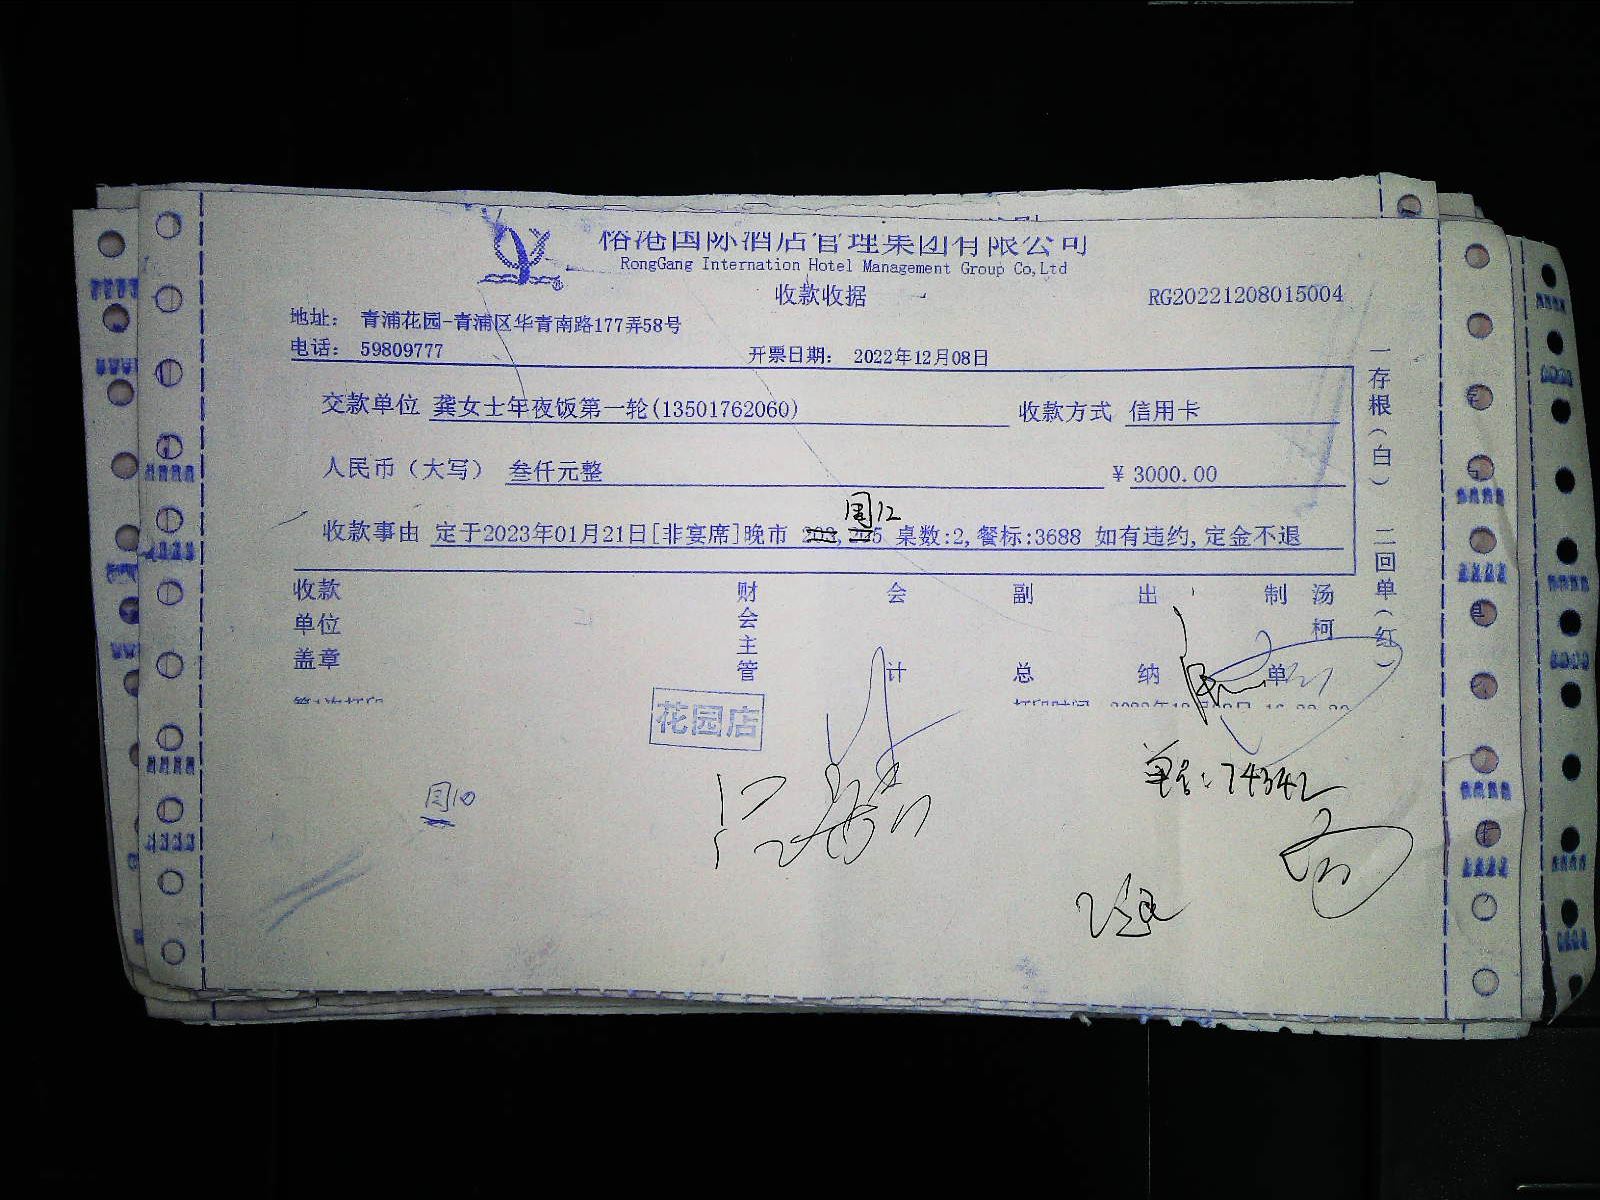 裕港国际酒店管理集团有限公司
RongGang Internation Hotel Management Group Co,Ltd
收款收据
RG20221208015004
地址: 青浦花园-青浦区华青南路177弄58号
电话: 59809777
开票日期: 2022年12月08日
交款单位 龚女士年夜饭第一轮(13501762060)
收款方式 信用卡
人民币（大写） 叁仟元整
¥ 3000.00
周12
收款事由 定于2023年01月21日[非宴席]晚市 桌数:2,餐标:3688 如有违约,定金不退
一存根(白) 二回单(红)
收款单位盖章
财会主管
会计
副总
出纳
制单
汤柯
花园店
单号:74342
周10